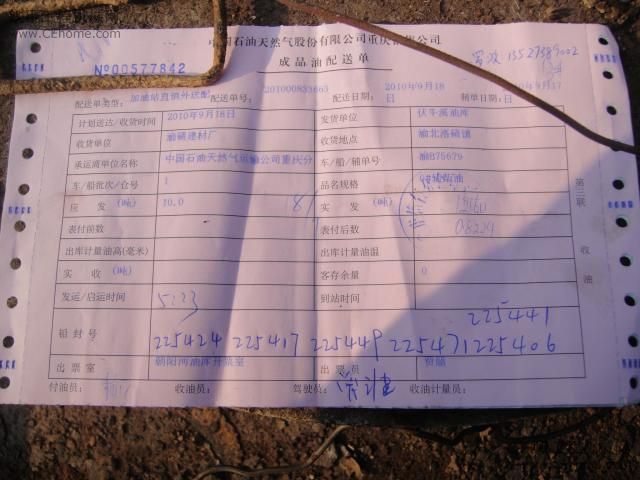 www.CEhome.com
中国石油天然气股份有限公司重庆销售公司
成品油配送单
№00577842
配送单类型: 加油站直销外送配 配送单号: 201000833663 配送日期: 2010年9月18日 制单日期:
计划送达/收货时间 2010年9月18日 发货单位 伏牛溪油库
收货单位 渝硕建材厂 收货地点 渝北洛碛镇
承运商单位名称 中国石油天然气运输公司重庆分 车/船/辅单号 渝B75679
车/船批次/仓号 1 品名规格
应 发 (吨) 10.0 实 发 (吨)
表付前数 表付后数 08224
出库计量油高(毫米) 出库计量油温
实 收 (吨) 客存余量 0
发运/启运时间 5:23 到站时间
225441
铅封号 225424 225417 225449 225471 225406
出票室 朝阳河油库开票室 出票员
付油员: 收油员: 驾驶员: 收油计量员:
第三联 收油